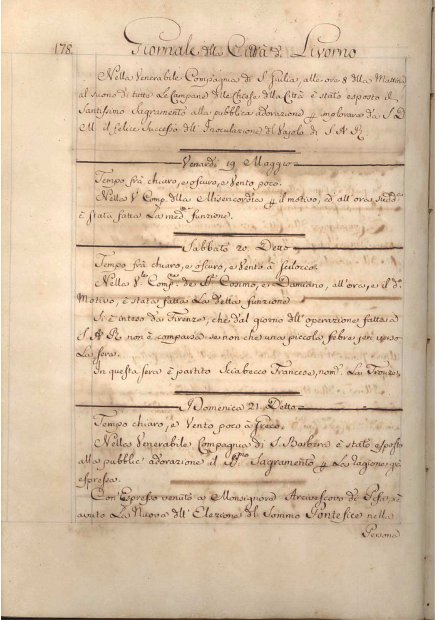 178. Giornale della Città di Livorno
Nella Venerabile Compagnia di S. Giulia, alle ore 8 della Mattina
al suono di tutte le Campane delle Chiese della Città è stato esposto il
Santissimo Sagramento alla pubblica adorazione p implorare da S. D.
M. il felice Successo dell' Inoculazione del Vajolo di S. A. R.
Venerdì 19 Maggio
Tempo frà chiaro, e oscuro, e Vento poco.
Nella V. Comp. della Misericordia p il motivo, ed all'ora sudd.a
è stata fatta La med.a funzione.
Sabbato 20. Detto
Tempo frà chiaro, e oscuro, e Vento à Scilocco.
Nella V.le Comp. de SS. Cosimo, e Damiano, all'ora, e il d.o
Motivo, è stata fatta La detta funzione
Si è inteso da Firenze, che dal giorno dell' operazione fatta a
S. A. R. non è comparsa se non che una piccola febre jeri verso
La sera.
In questa sera è partito Sciabecco Francese, nom.o La
Domenica 21. Detto
Tempo chiaro, e Vento poco à Greco.
Nella Venerabile Compagnia di S. Barbera è stato esposto
alla pubblic' adorazione il SS.mo Sagramento p La ragione già
espressa.
Con Espresso venuto a Monsignore Arcivescovo di Pisa, si è
avuto La Nuova dell' Elezione del Sommo Pontefice nella
Persona